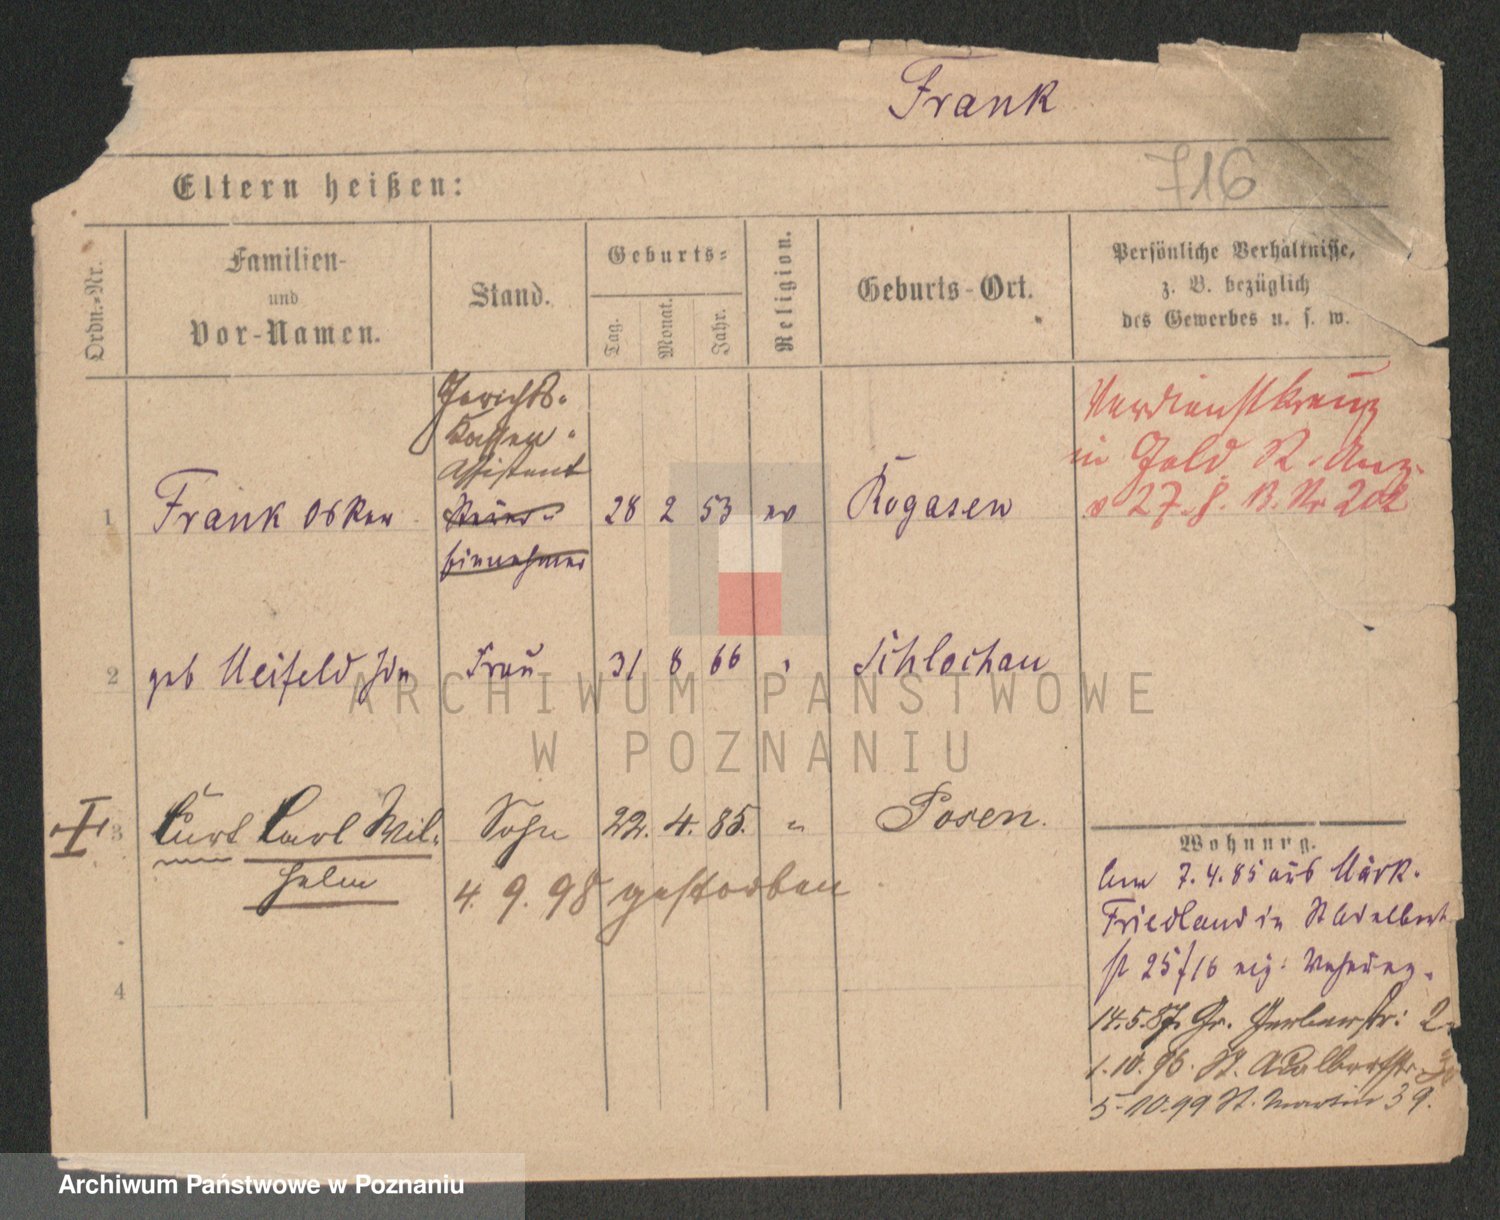 Frank
716
Eltern heißen:
Ordn.-Nr.
Familien-
und
Vor-Namen.
Stand.
Geburts-
Tag.
Monat.
Jahr.
Religion.
Geburts-Ort.
Persönliche Verhältnisse,
z. B. bezüglich
des Gewerbes u. s. w.
Gerichts-
Kassen-
Assistent
1 Frank Oskar Steuer- 28 2 53 ev Rogasen
Einnehmer
Verdienstkreuz
in Gold
27. 202
2 geb Neifeld Frau 31 8 66 Schlochau
3 Curt Carl Wil- Sohn 22. 4. 85. " Posen.
helm
4. 9. 98 gestorben
4
Wohnung.
7.4.85 aus Märk.
Friedland in St Adalbert
st 25/16 eig. Wohnung.
14.5.87. Gr. Gerberstr: 2
1.10. St. Adalbertstr.
5-10.99 St. Martin 39.
ARCHIWUM PAŃSTWOWE
W POZNANIU
Archiwum Państwowe w Poznaniu